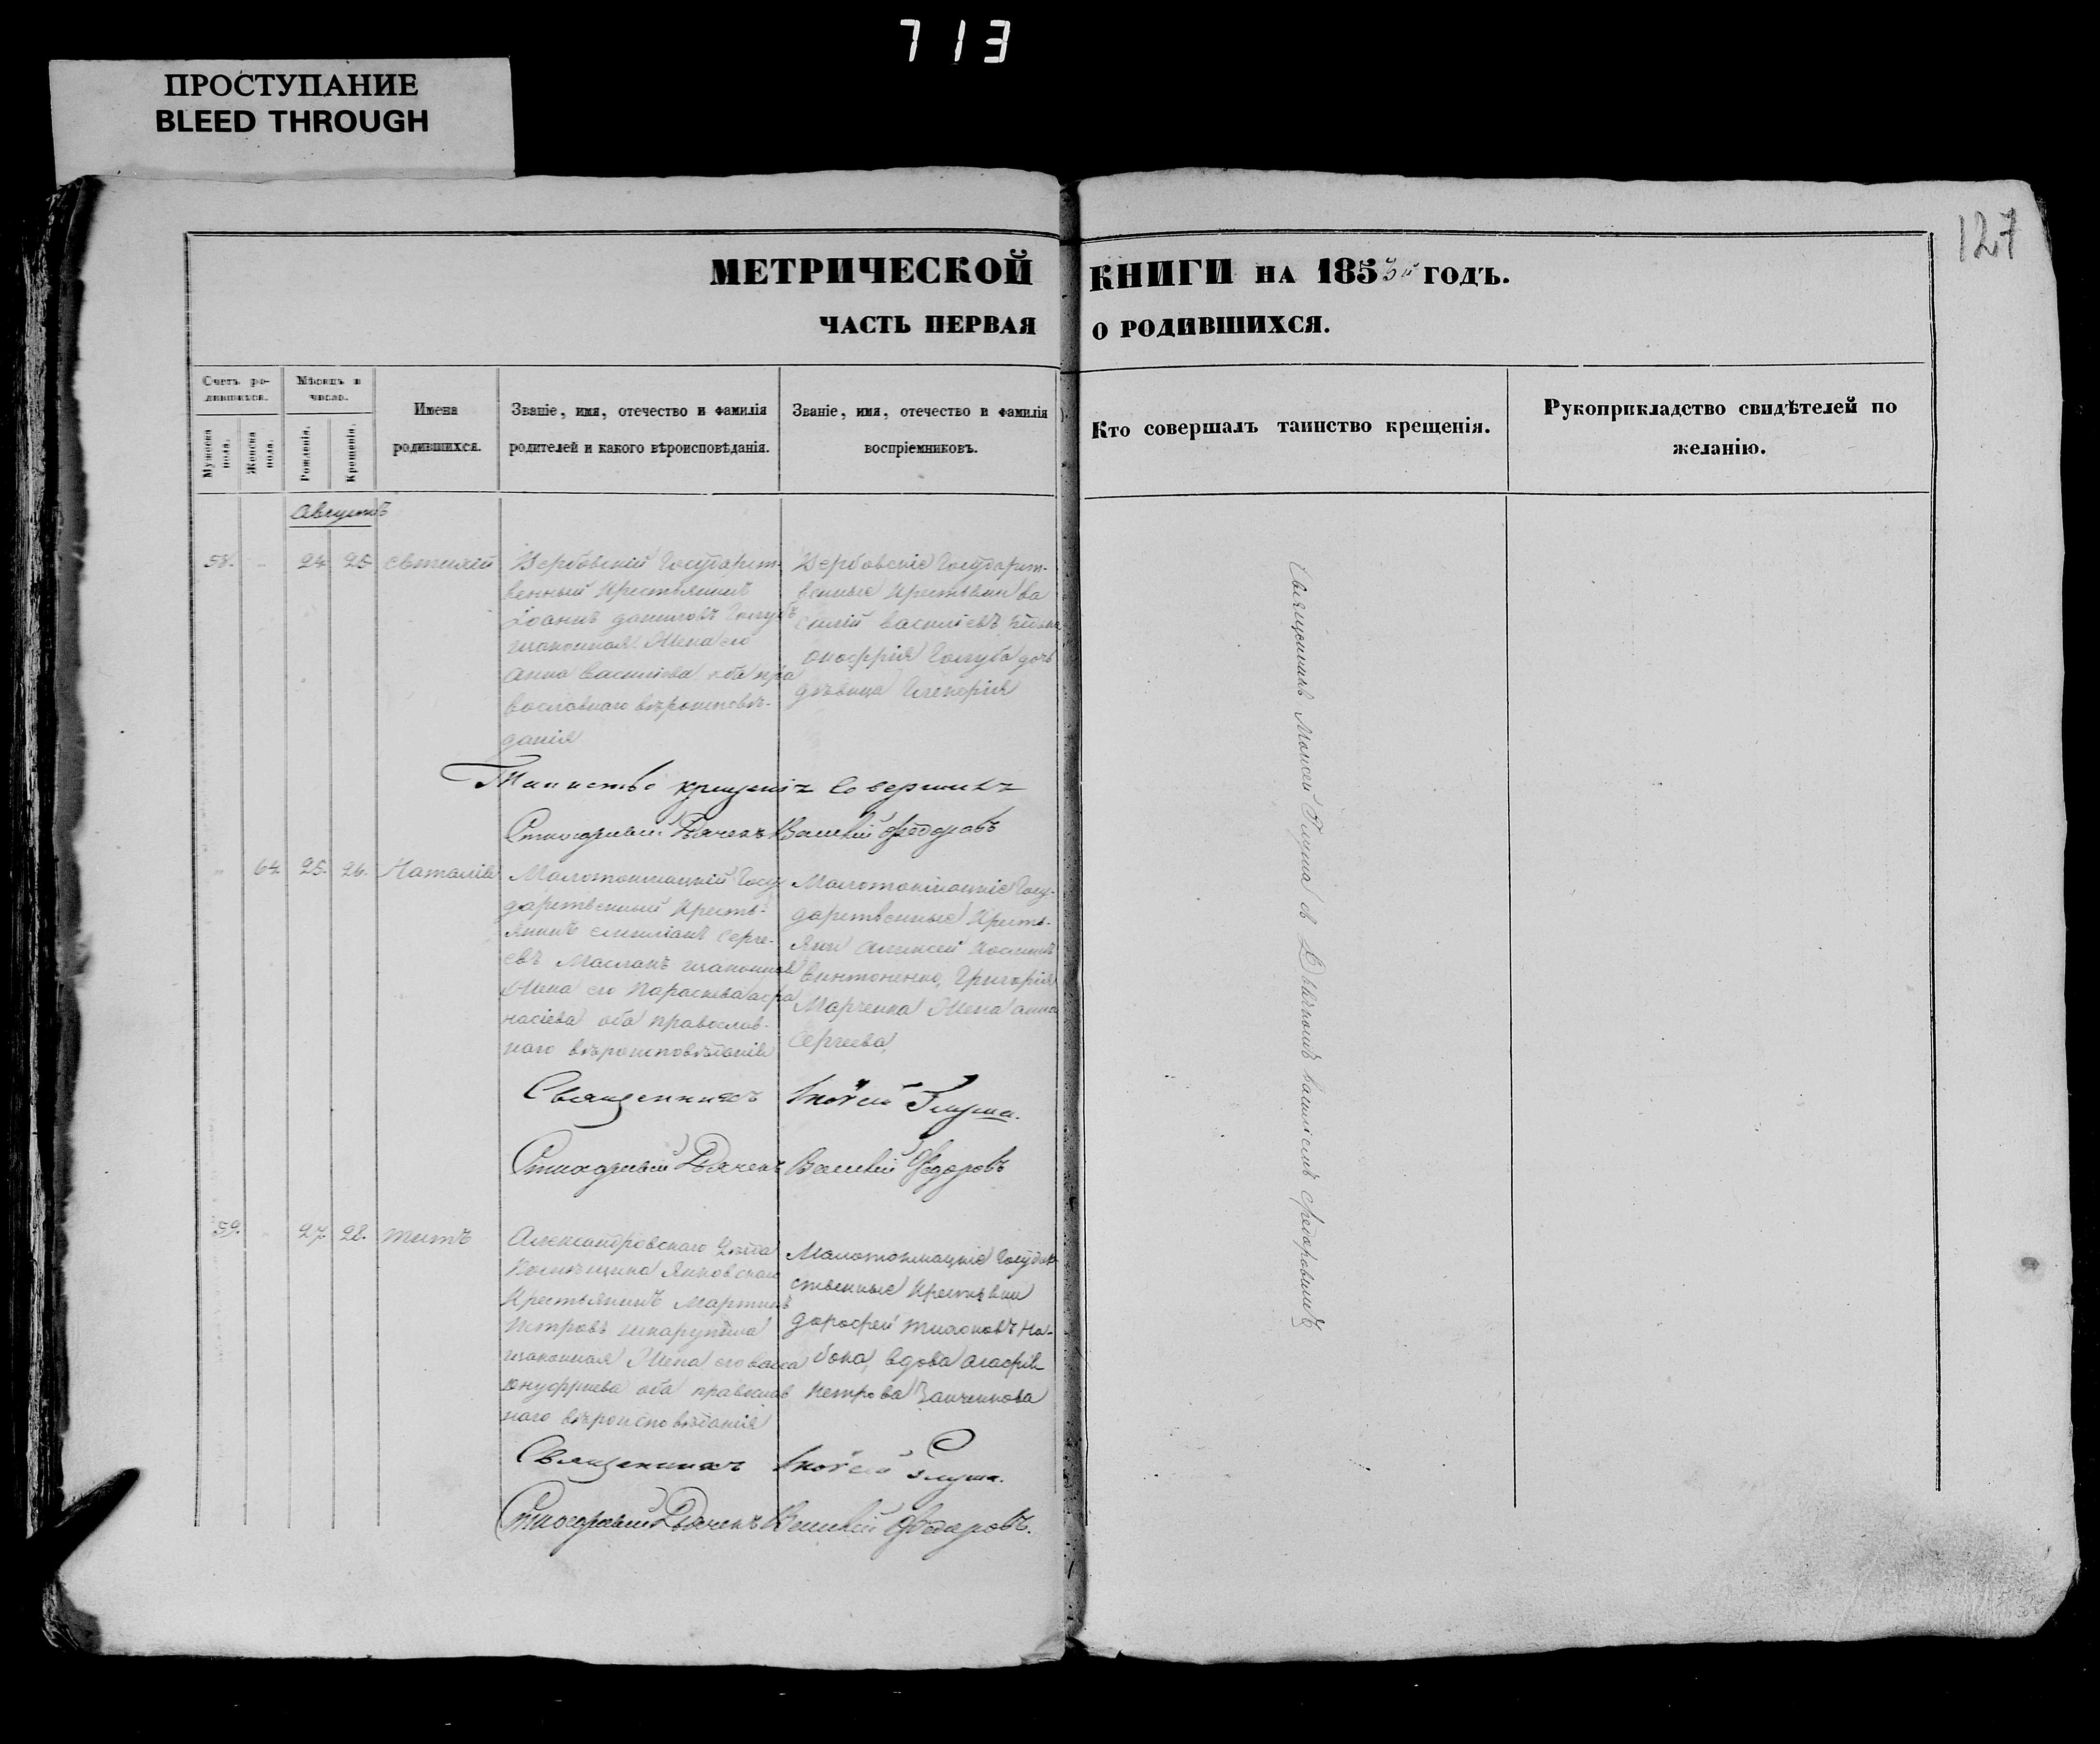 713
ПРОСТУПАНИЕ
BLEED THROUGH
127
МЕТРИЧЕСКОЙ КНИГИ НА 1853й ГОДЪ.
ЧАСТЬ ПЕРВАЯ О РОДИВШИХСЯ.
Счетъ родившихся.
Мужеска пола.
Женска пола.
Мѣсяцъ и число.
Рожденія.
Крещенія.
Имена
родившихся.
Званіе, имя, отечество и фамилія
родителей и какого вѣроисповѣданія.
Званіе, имя, отечество и фамилія
воспріемниковъ.
Кто совершалъ таинство крещенія.
Рукоприкладство свидѣтелей по
желанію.
Августъ
58. 24 25 Евтихій
Вербовскій Государст-
венный Крестьянинъ
Іоаннъ Даниловъ Голубъ
законная Жена его
Анна Васильева оба пра
вославнаго вѣроисповѣ-
данія
Вербовскіе Государст-
венные Крестьяни Ва
силій Васильевъ
Голуба дочь
дѣвица Гликерія
Таинство крещенія совершилъ
Стихарный Дьячекъ Василій Федоровъ
64. 25. 26. Наталія
Малотокмацкій Госу
дарственный Кресть-
янинъ Емиліанъ Серге-
евъ Масланъ законная
Жена его Параскева Афа
насіева оба православ-
наго вѣроисповѣданія
Малотокмацкіе Госу-
дарственные Кресть-
яни Алексей
Винтоненко, Григорія
Марченка Жена Анна
Сергеева
Священникъ Моѵсей Глуша.
Стихарный Дьячекъ Василій Федоровъ
59. 27. 28. Титъ
Александровскаго Уѣзда
Помѣщика Янковскаго
Крестьянинъ Мартинъ
Петровъ
законная Жена его Васса
Онуфриева оба православ
наго вѣроисповѣданія
Малотокмацкіе Государ
ственные Крестьяни
Дорофей Тихоновъ На-
бока, вдова Агафія
Петрова Заиченкова
Священникъ Моѵсей Глуша.
Стихарный Дьячекъ Василій Федоровъ.
Священникъ Моисей Глуша съ Дьячкомъ Василіемъ Федоровимъ